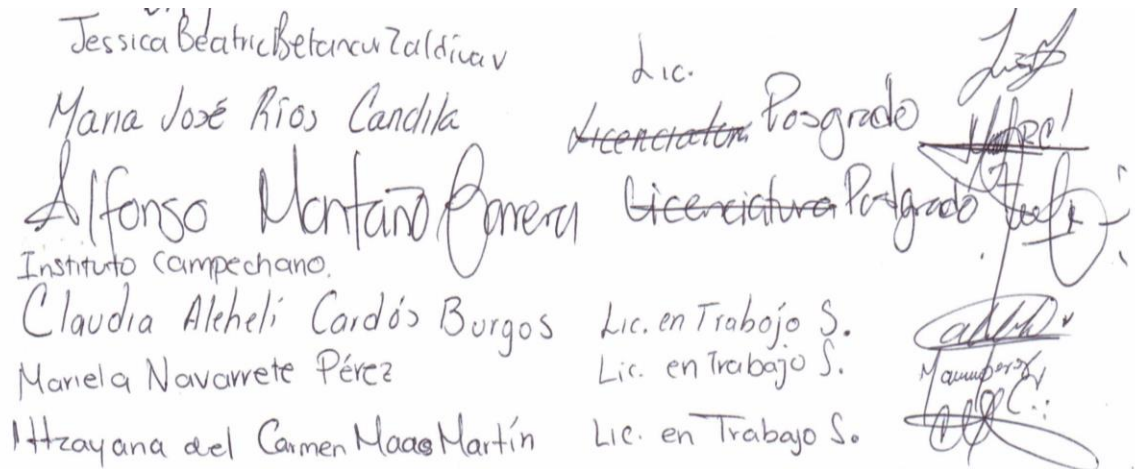 Jessica Beatric Betancur Zaldívar Lic.
Maria José Ríos Candila Licenciatura Posgrado
Alfonso Montaño Barrera Licenciatura Postgrado
Instituto Campechano.
Claudia Alehelí Cardós Burgos Lic. en Trabajo S.
Mariela Navarrete Pérez Lic. en Trabajo S.
Ittzayana del Carmen Maas Martín Lic. en Trabajo S.